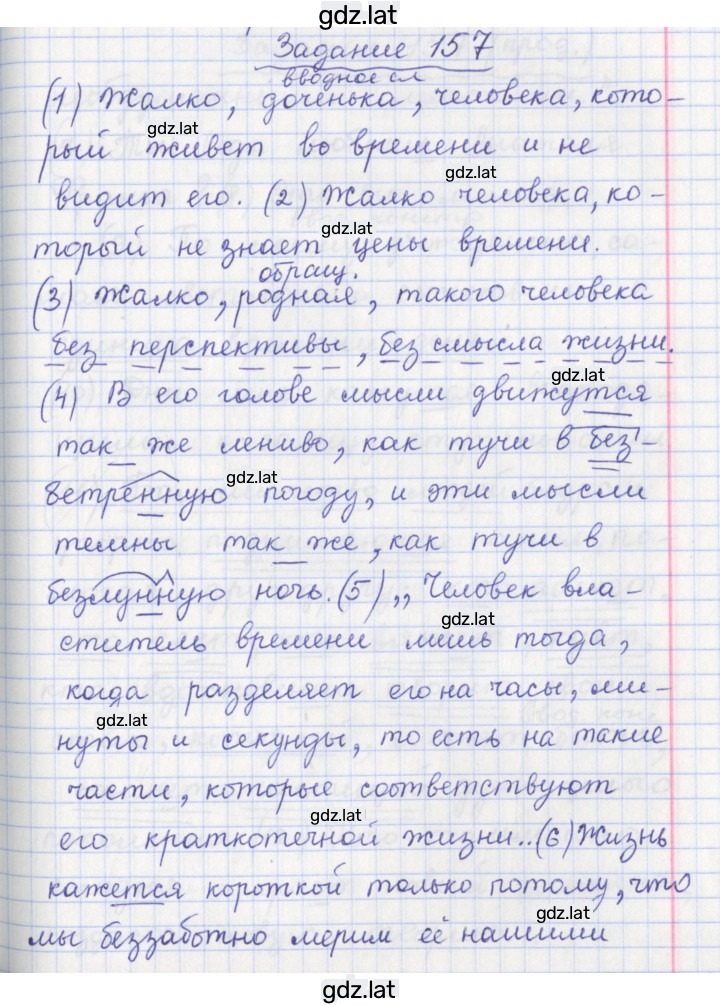 gdz.lat
Задание 157
вводное сл
(1) Жалко, доченька, человека, кото-
gdz.lat
рый живет во времени и не
gdz.lat
видит его. (2) Жалко человека, ко-
gdz.lat
торый не знает цены времени.
обращ.
(3) Жалко, родная, такого человека
без перспективы, без смысла жизни.
gdz.lat
(4) В его голове мысли движутся
так же лениво, как тучи в без-
gdz.lat
ветренную погоду, и эти мысли
темны так же, как тучи в
безлунную ночь. (5) „Человек вла-
gdz.lat
ститель времени лишь тогда,
когда разделяет его на часы, ми-
gdz.lat
нуты и секунды, то есть на такие
части, которые соответствуют
gdz.lat
его краткотечной жизни.. (6) Жизнь
кажется короткой только потому, что
gdz.lat
мы беззаботно мерим её нашими
gdz.lat